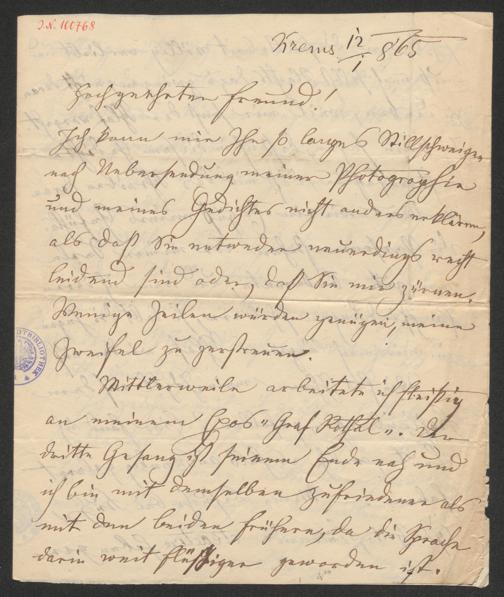 I.N. 160768
Krems 12/1 865
Hochgeehrter Freund!
Ich kann mir Ihr so langes Stillschweigen
nach Uebersendung meiner Photographie
und meines Gedichtes nicht anders erklären,
als daß Sie entweder neuerdings recht
leidend sind oder, daß Sie mir zürnen.
Wenige Zeilen würden genügen, meine
Zweifel zu zerstreuen.
Mittlerweile arbeitete ich fleißig
an meinem Epos „Graf Rothal“. Der
dritte Gesang ist seinem Ende nah und
ich bin mit demselben zufriedener als
mit den beiden frühern, da die Sprache
darin weit flüßiger geworden ist.